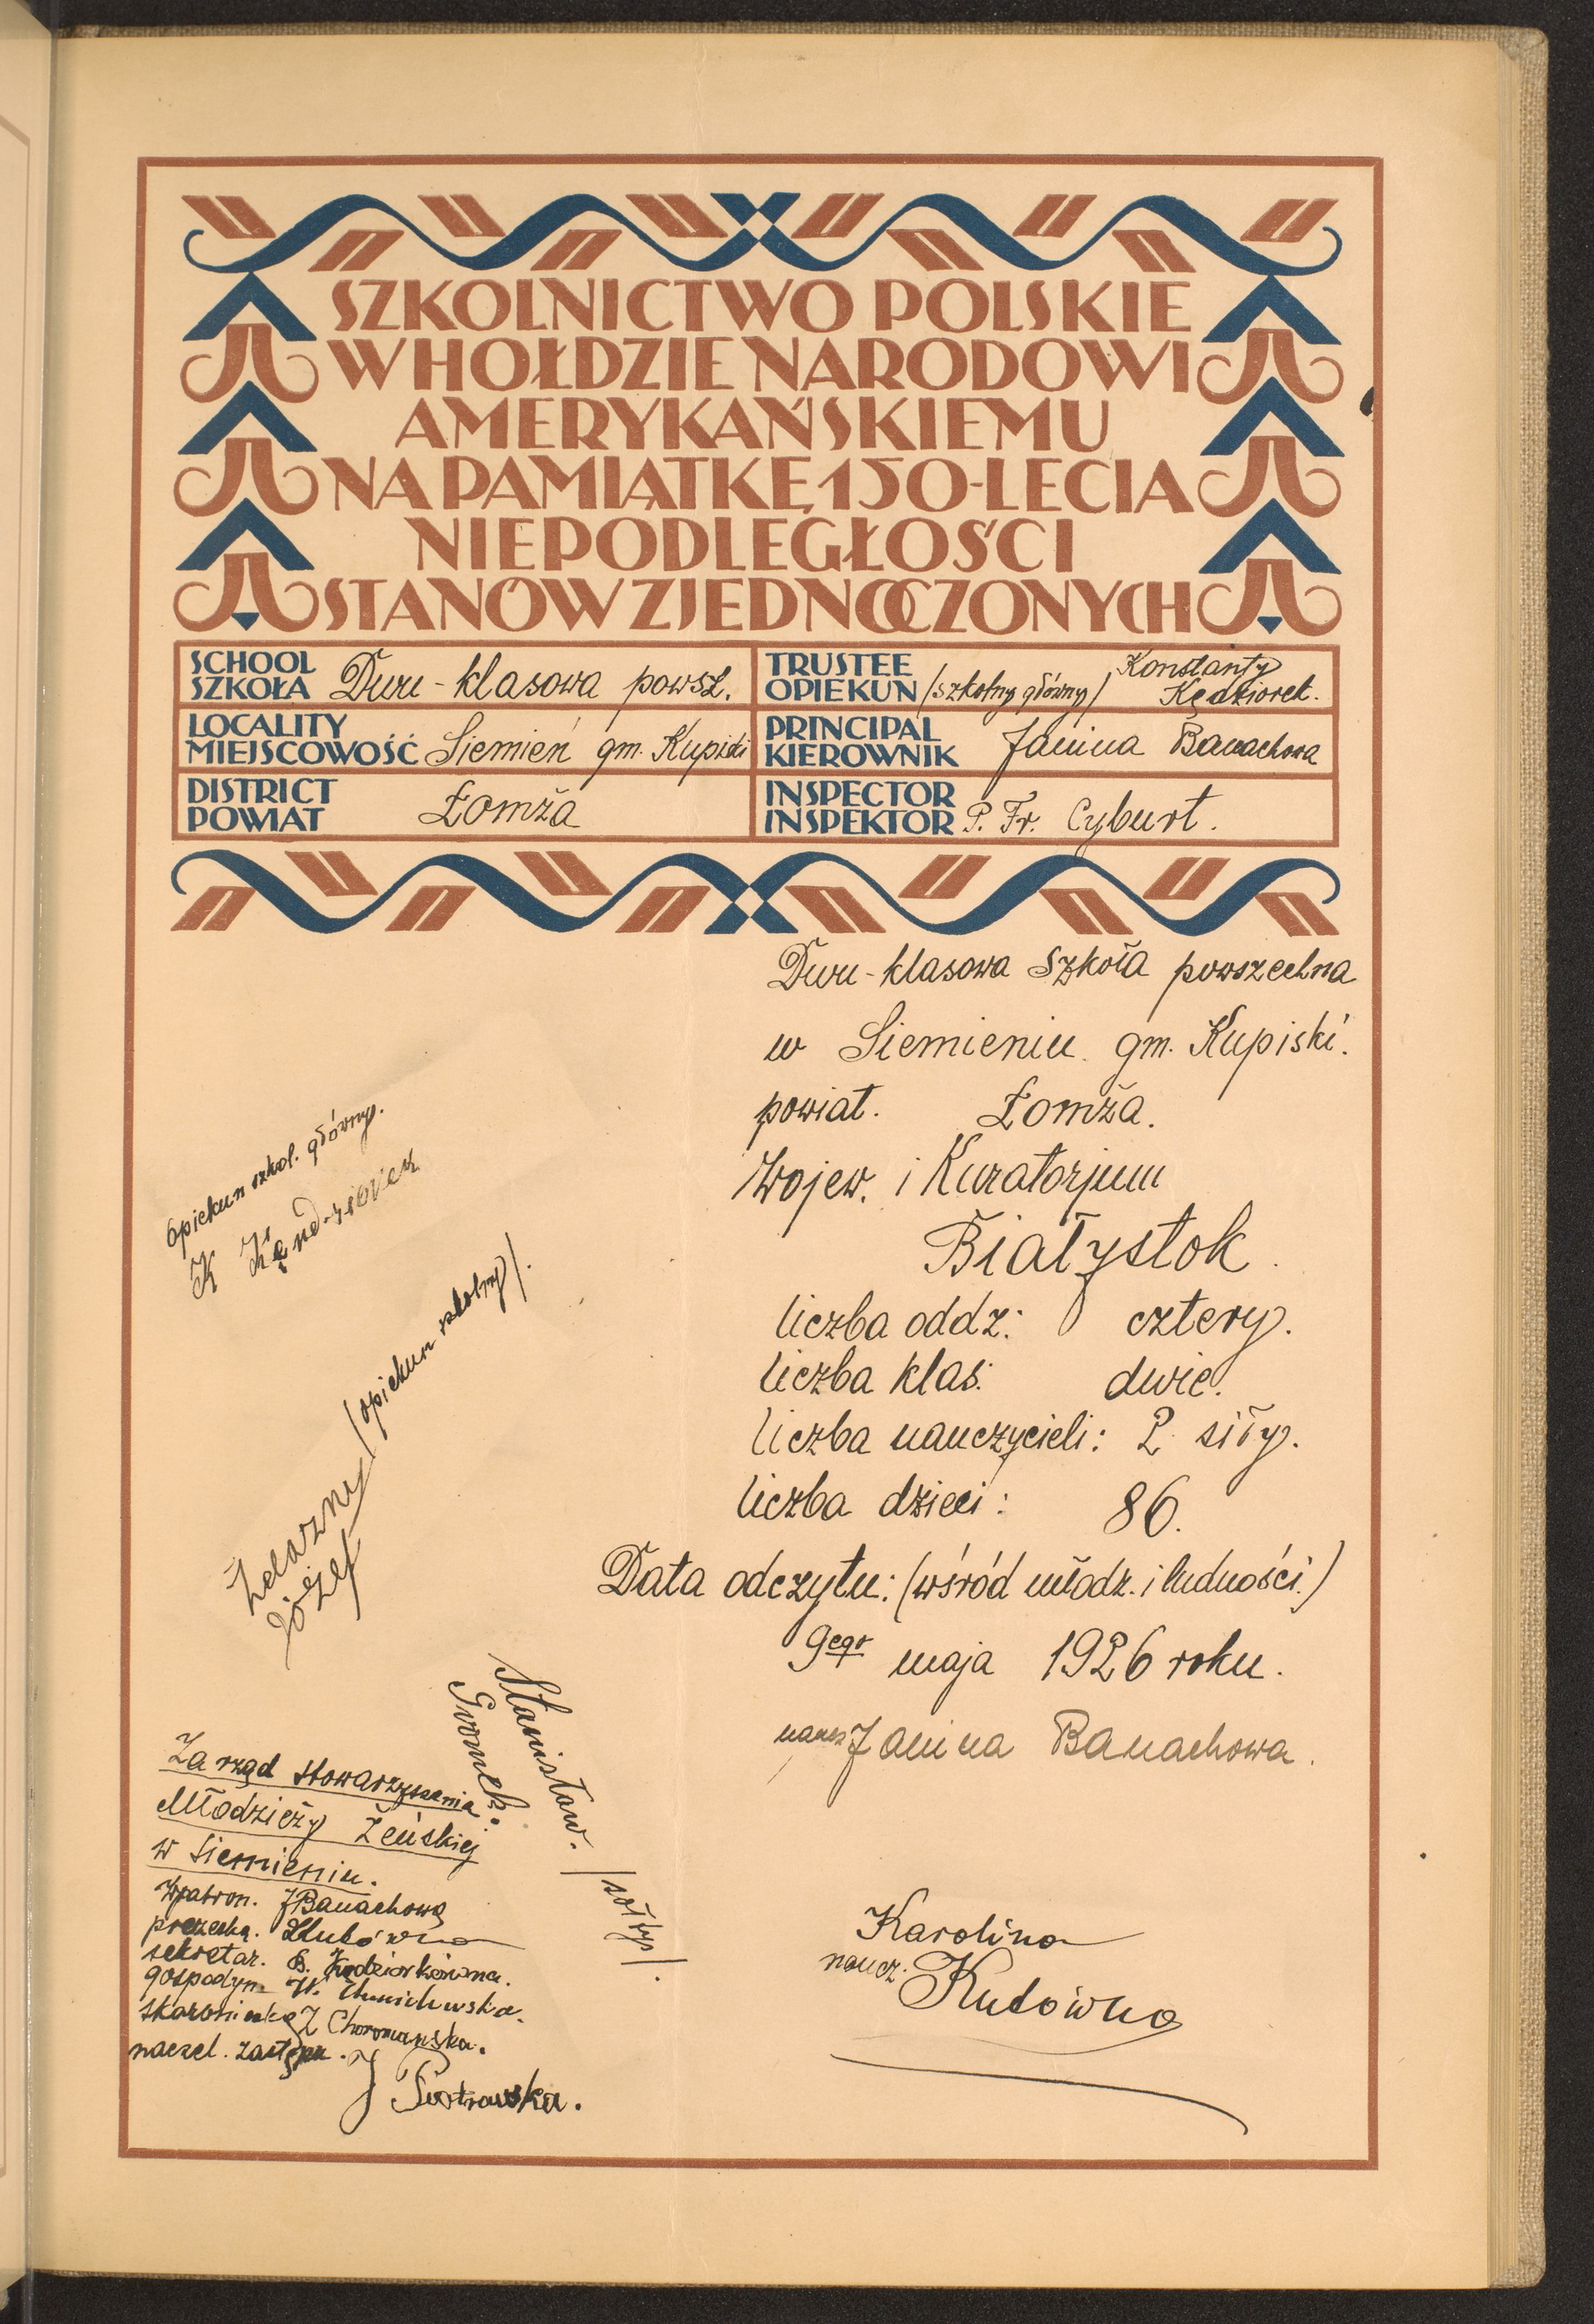 SZKOLNICTWO POLSKIE
W HOŁDZIE NARODOWI
AMERYKAŃSKIEMU
NA PAMIĄTKĘ 150-LECIA
NIEPODLEGŁOŚCI
STANÓW ZJEDNOCZONYCH
SCHOOL
SZKOŁA Dwu-klasowa powsz.
TRUSTEE
OPIEKUN /szkolny główny/ Konstanty
Kędziorek.
LOCALITY
MIEJSCOWOŚĆ Siemień gm. Kupiski
PRINCIPAL
KIEROWNIK Janina Banachowa
DISTRICT
POWIAT Łomża
INSPECTOR
INSPEKTOR P. Fr. Cyburt.
Dwu-klasowa Szkoła powszechna
w Siemieniu gm. Kupiski.
powiat. Łomża.
Wojew. i Kuratorjum
Białystok.
liczba oddz: cztery.
liczba klas: dwie.
liczba nauczycieli: 2 siły.
liczba dzieci: 86.
Data odczytu: (wśród młodz. i ludności.)
9ego maja 1926 roku.
naucz Janina Banachowa.
Karolina
naucz. Kutówna
opiekun szkol. główny.
K
Żelazny /opiekun szkolny/.
Józef
Stanisław. /sołtys/.
Gromek.
Zarząd stowarzyszenia
Młodzieży Żeńskiej
w Siemieniu.
patron. J Banachowa
prezeska.
sekretar. B. Kędziorkówna.
gospodyn. W.
skarbniczka Z Choromańska.
naczel. zastępu.
J Piotrowska.